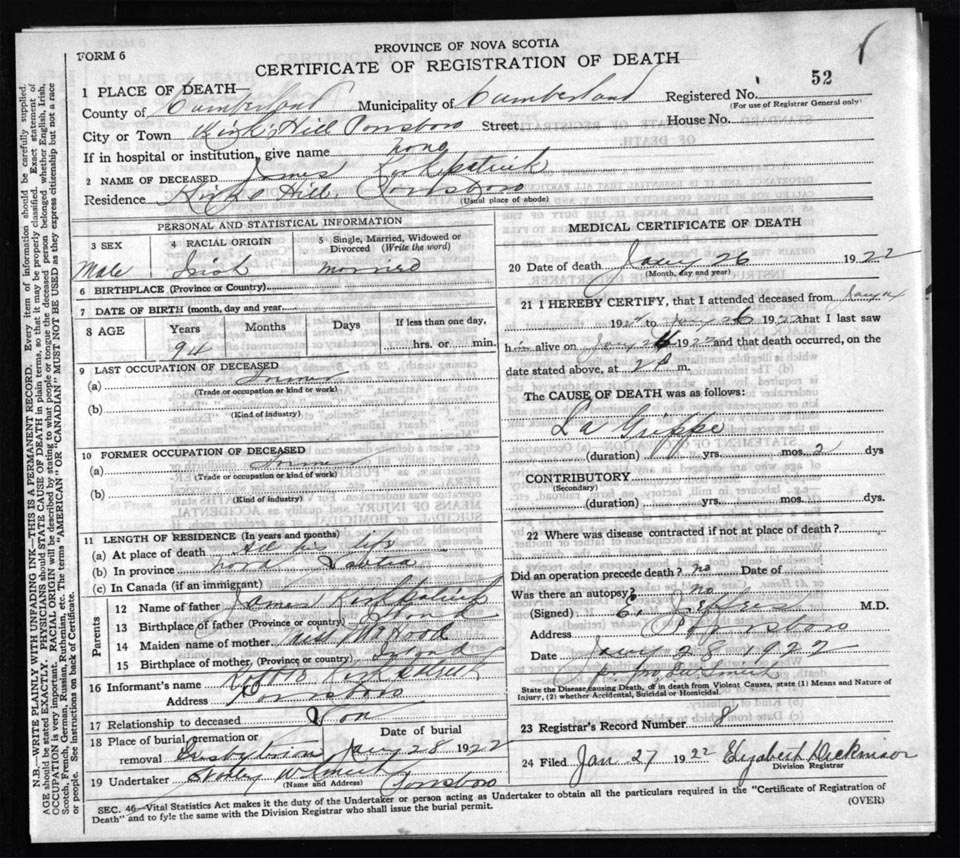 PROVINCE OF NOVA SCOTIA
FORM 6
CERTIFICATE OF REGISTRATION OF DEATH
52
1 PLACE OF DEATH
Registered No.
(For use of Registrar General only)
County of Cumberland Municipality of Cumberland
City or Town Kirk's Hill Parrsboro Street House No.
If in hospital or institution, give name none
2 NAME OF DECEASED James Kirkpatrick
Residence Kirk's Hill Parrsboro
(Usual place of abode)
PERSONAL AND STATISTICAL INFORMATION
3 SEX 4 RACIAL ORIGIN 5 Single, Married, Widowed or Divorced (Write the word)
Male Irish married
6 BIRTHPLACE (Province or Country)
7 DATE OF BIRTH (month, day and year)
8 AGE Years Months Days If less than one day,
94 hrs. or min.
9 LAST OCCUPATION OF DECEASED
(a) Farmer
(Trade or occupation or kind or work)
(b)
(Kind of industry)
10 FORMER OCCUPATION OF DECEASED
(a)
(Trade or occupation or kind of work)
(b)
(Kind of industry)
11 LENGTH OF RESIDENCE (In years and months)
(a) At place of death All his life
(b) In province Nova Scotia
(c) In Canada (if an immigrant)
Parents
12 Name of father James Kirkpatrick
13 Birthplace of father (Province or country)
14 Maiden name of mother
15 Birthplace of mother (Province or country)
16 Informant's name Kirkpatrick
Address Parrsboro
17 Relationship to deceased Son
18 Place of burial, cremation or removal Date of burial
Presbyterian Jany 28 1922
19 Undertaker
(Name and Address) Parrsboro
MEDICAL CERTIFICATE OF DEATH
20 Date of death Jany 26 1922
(Month, day and year)
21 I HEREBY CERTIFY, that I attended deceased from Jany
192 to Jany 26 1922 that I last saw
him alive on Jany 1922 and that death occurred, on the
date stated above, at m.
The CAUSE OF DEATH was as follows:
La Grippe
(duration) yrs. mos. 2 dys
CONTRIBUTORY
(Secondary)
(duration) yrs. mos. dys.
22 Where was disease contracted if not at place of death?
Did an operation precede death? no Date of
Was there an autopsy? no
(Signed) M.D.
Address Parrsboro
Date Jany 28 1922
State the Disease causing Death, or in death from Violent Causes, state (1) Means and Nature of
Injury, (2) whether Accidental, Suicidal or Homicidal.
23 Registrar's Record Number 8
24 Filed Jan 27 1922 Elizabeth Dickinson
Division Registrar
SEC. 46.—Vital Statistics Act makes it the duty of the Undertaker or person acting as Undertaker to obtain all the particulars required in the "Certificate of Registration of
Death" and to fyle the same with the Division Registrar who shall issue the burial permit.
(OVER)
N.B.—WRITE PLAINLY WITH UNFADING INK—THIS IS A PERMANENT RECORD. Every item of information should be carefully supplied.
AGE should be stated EXACTLY. PHYSICIANS should STATE CAUSE OF DEATH in plain terms, so that it may be properly classified. Exact statement of
OCCUPATION is very important. RACIAL ORIGIN will be described by stating to what people or tongue the deceased person belonged whether English, Irish,
Scotch, French, German, Russian, Ruthenian, etc. The terms "AMERICAN" OR "CANADIAN" MUST NOT BE USED as they express citizenship but not a race
or people. See instructions on back of Certificate.